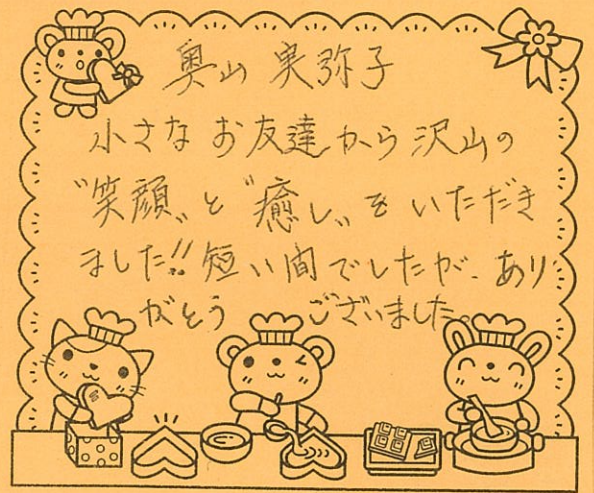 奥山 実弥子
小さな お友達から 沢山の
〝笑顔〟と〝癒し〟を いただき
ました!! 短い間でしたが、あり
がとう ございました。